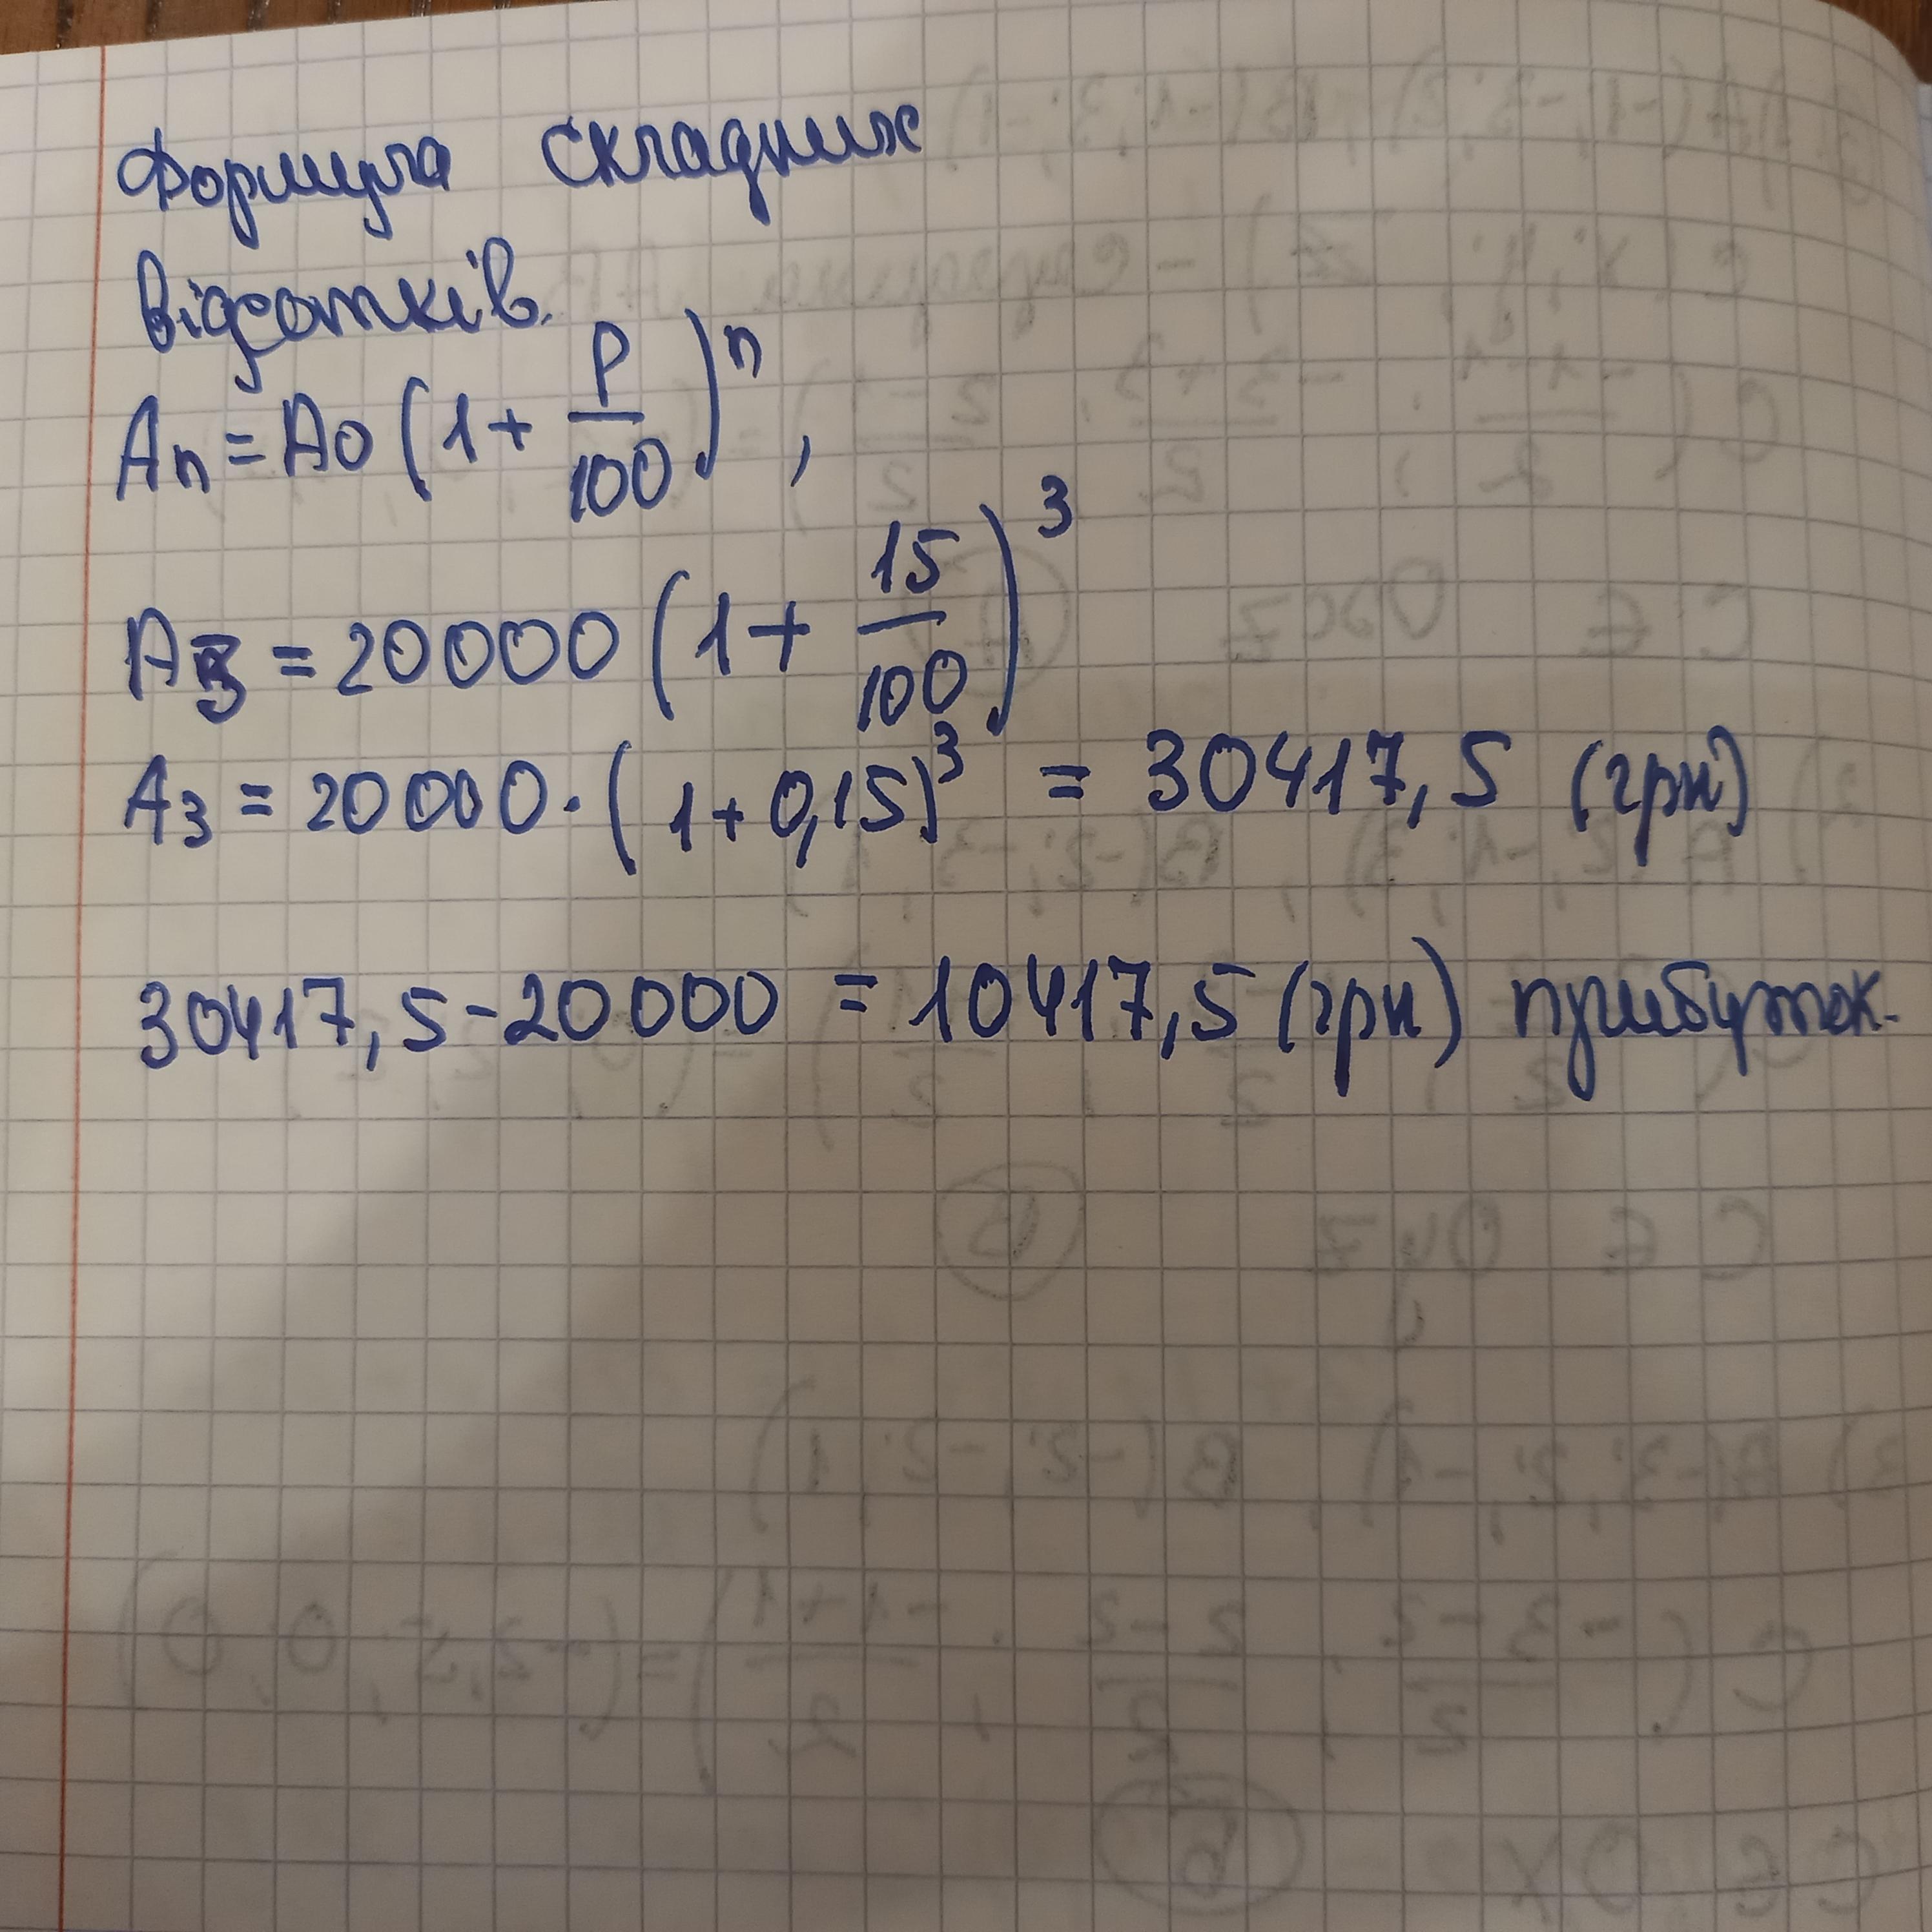 Формула складних
відсотків.
An = A0 (1 + P/100)^n ,
A3 = 20000 (1 + 15/100)^3
A3 = 20000 · (1 + 0,15)^3 = 30417,5 (грн)
30417,5 - 20000 = 10417,5 (грн) прибуток.